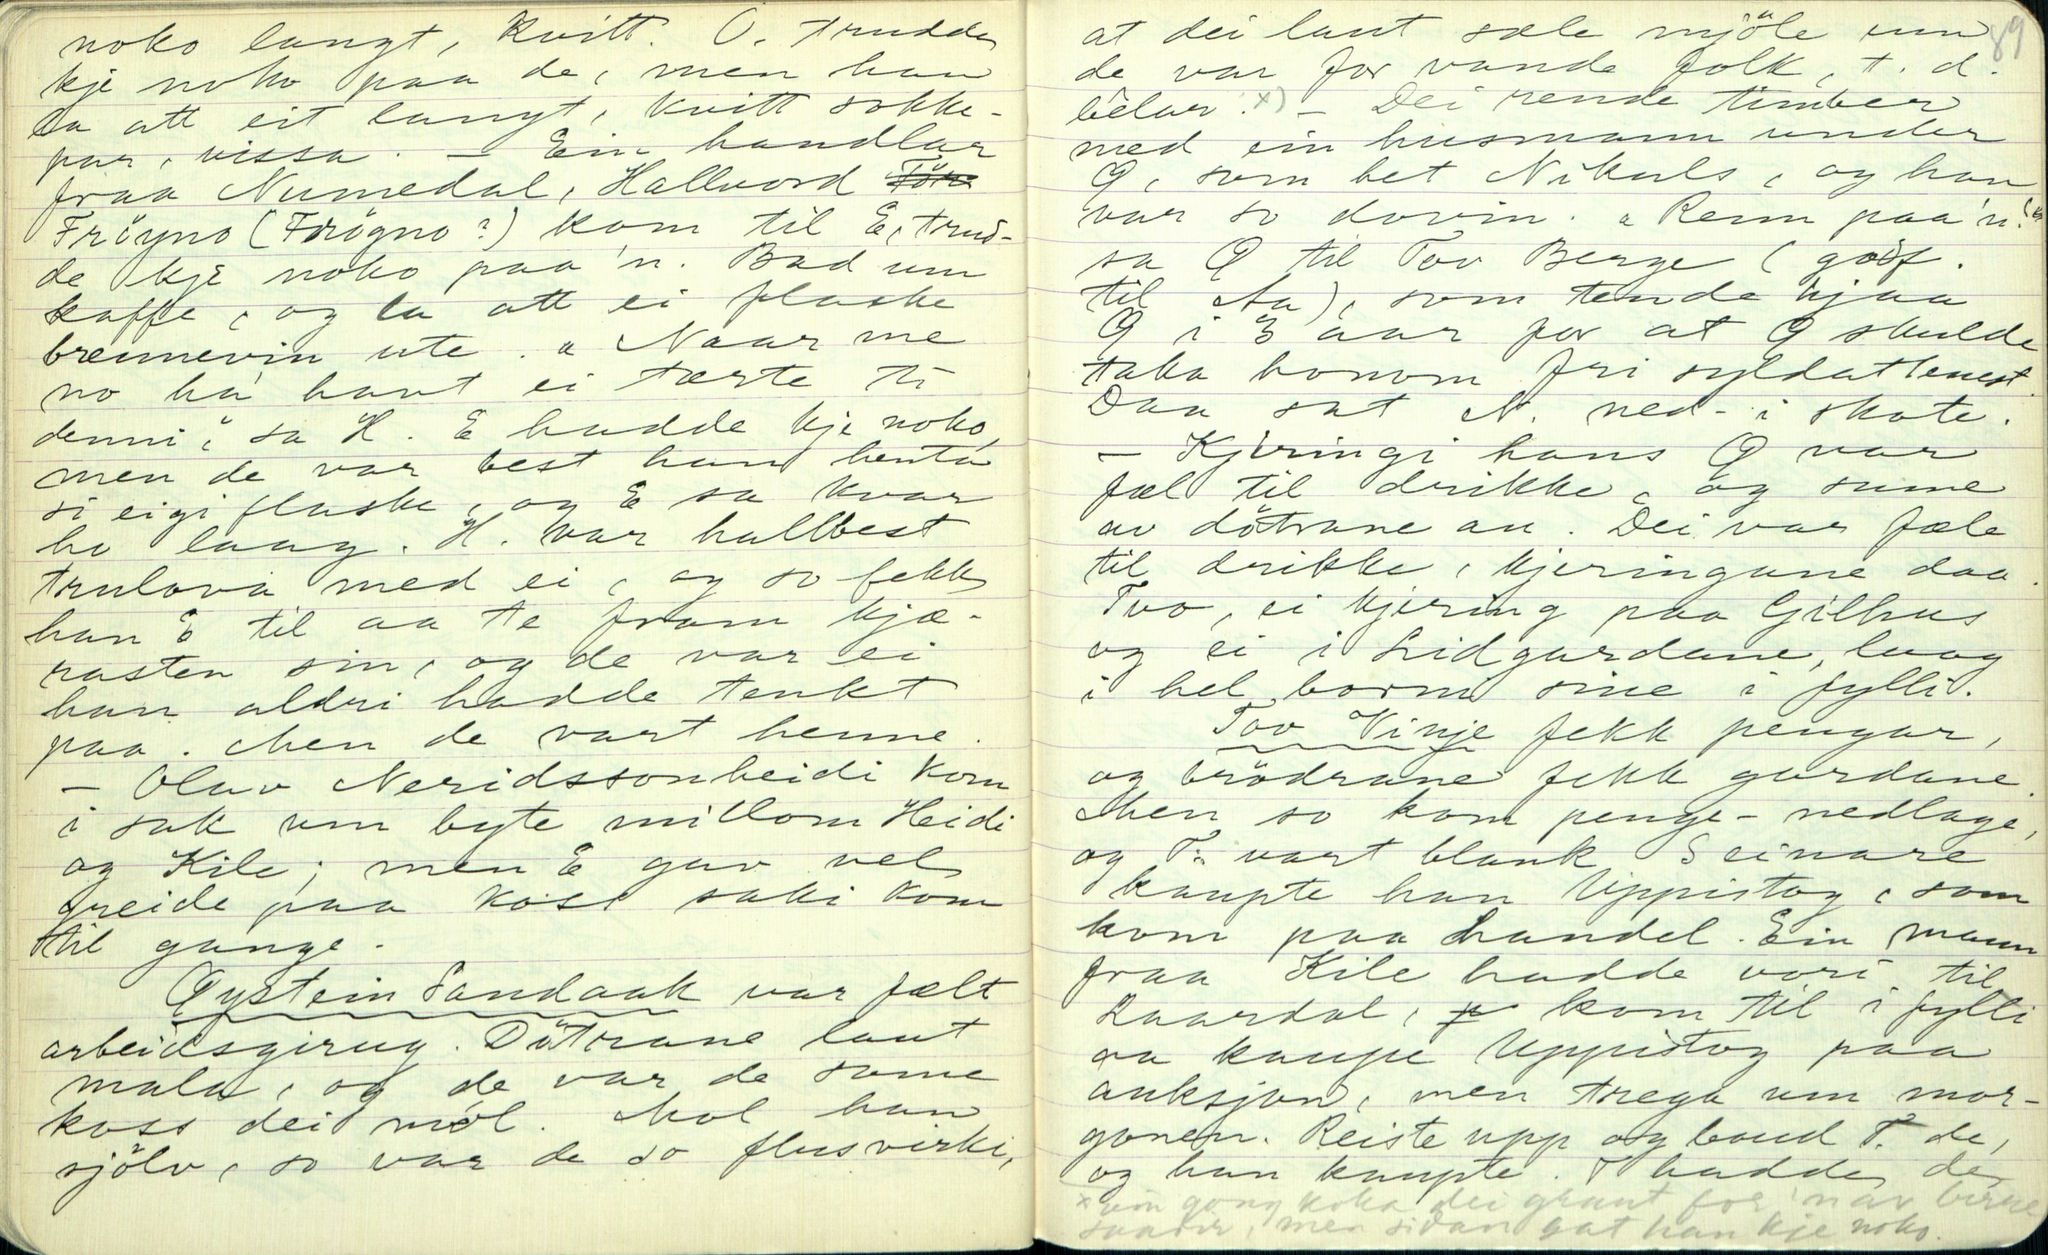 noko langt, kvitt. O. trudde
kje noko paa de, men han
la att eit langt, kvitt sokke-
par, vissa. — Ein handlar
fraa Numedal, Hallvord
Fröyno (Frögno?) kom til E, trud-
de kje noko paa 'n. Bad um
kaffe, og la att ei flaske
brennevin ute. "Naar me
no há havt ei tærte ti
denni", sa H. E hadde kje noko,
men de var best han henta
si eigi flaske, og E sa kvar
ho laag. H. var hallbest
trulova med ei, og so fekk
han E til aa te fram kjæ-
rasten sin, og de var ei
han aldri hadde tenkt
paa. Men de vart henne.
— Olav Neridssonheidi kom
i sak um byte millom Heidi
og Kile; men E gav vel
greide paa koss saki kom
til gange.
Øystein Sandaak var fælt
arbeidsgirug. Dötrane laut
mala, og de var de same
koss dei mol. Mol han
sjölv, so var de so flusvirki,
89
at dei laut sæle mjöle um
de var for vande folk, t. d.
belar. x) — Dei rende timber
med ein husmann under
Ø, som het Nikuls, og han
var so dovin. "Renn paa 'n!"
sa Ø til Tov Berge (godf.
til Aa), som tende hjaa
Ø i 3 aar for at Ø skulde
taka honom fri syldattenest.
Daa sat N. ned-i skote.
— Kjeringi hans Ø var
fæl til drikke, og sume
av dötrane au. Dei var fæle
til drikke, kjeringane daa.
Tvo, ei kjering paa Gilhus
og ei i Lidgardane, laag
i hel borni sine i fylli.
Tov Vinje fekk pengar,
og brödrane fekk gardane.
Men so kom penge-nedlage,
og T. vart blank. Seinare
kaupte han Uppistog, som
kom paa handel. Ein mann
fraa Kile hadde vori til
Laardal, kom til i fylli
aa kaupe Uppistog paa
auksjon, men trega um mor-
gonen. Reiste upp og baud T. de,
og han kaupte. T hadde de
x ein gong koka dei graut for 'n av berre
saader, men sidan gat han kje noko.